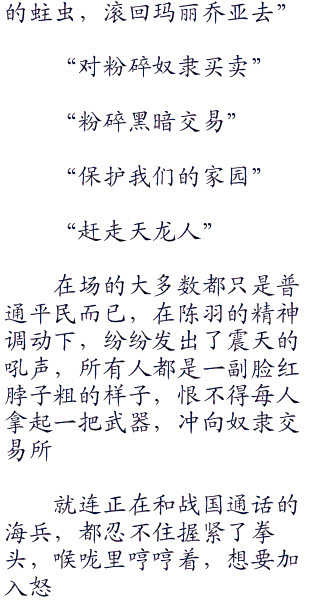 的蛀虫，滚回玛丽乔亚去”
“对粉碎奴隶买卖”
“粉碎黑暗交易”
“保护我们的家园”
“赶走天龙人”
在场的大多数都只是普
通平民而已，在陈羽的精神
调动下，纷纷发出了震天的
吼声，所有人都是一副脸红
脖子粗的样子，恨不得每人
拿起一把武器，冲向奴隶交
易所
就连正在和战国通话的
海兵，都忍不住握紧了拳
头，喉咙里哼哼着，想要加
入怒